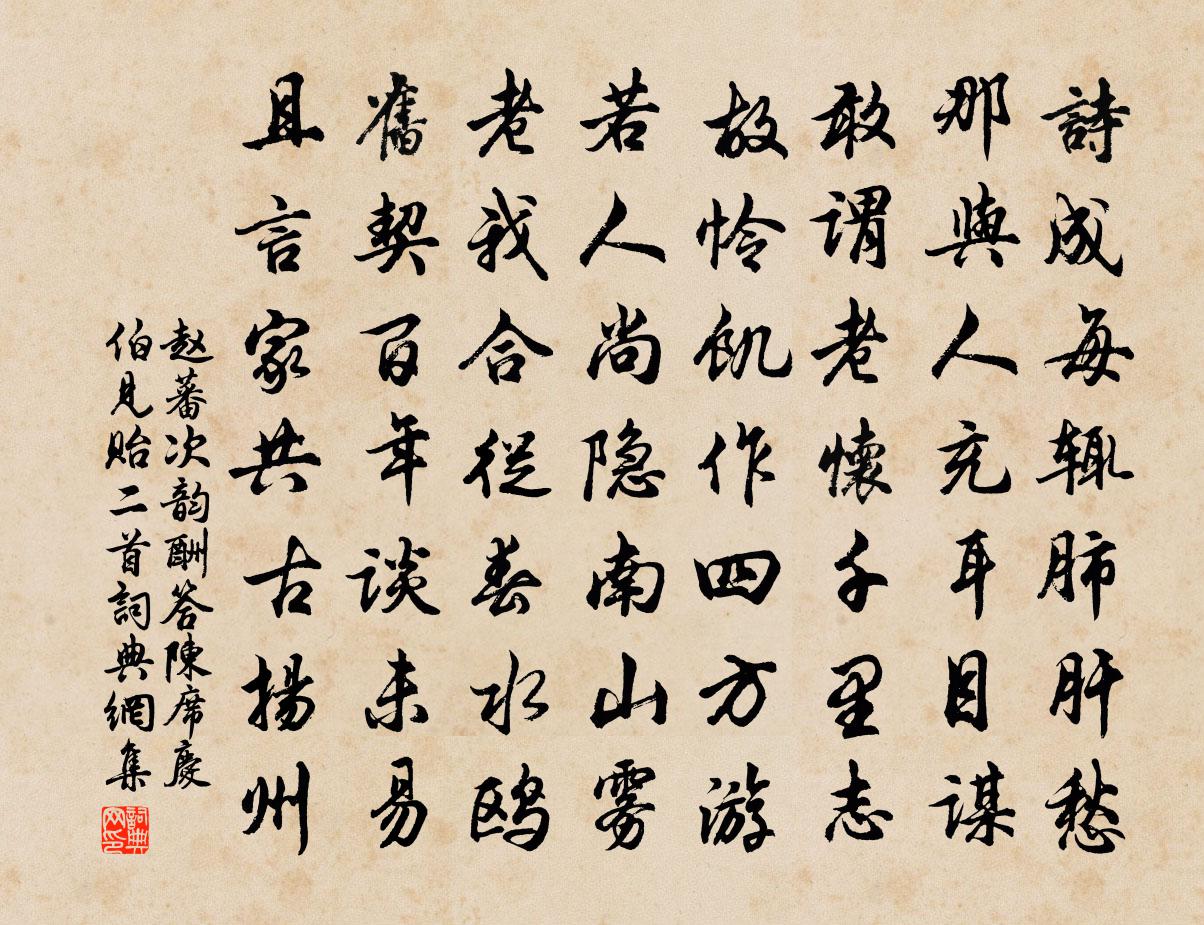 詩成每辄肺肝愁
那與人充耳目謀
敢谓老懷千里志
故怜飢作四方游
若人尚隐南山雾
老我合從春水鸥
舊契百年談未易
且言家共古揚州
赵蕃次韵酬答陳席慶
伯見貽二首詞典網集
詞典
网印